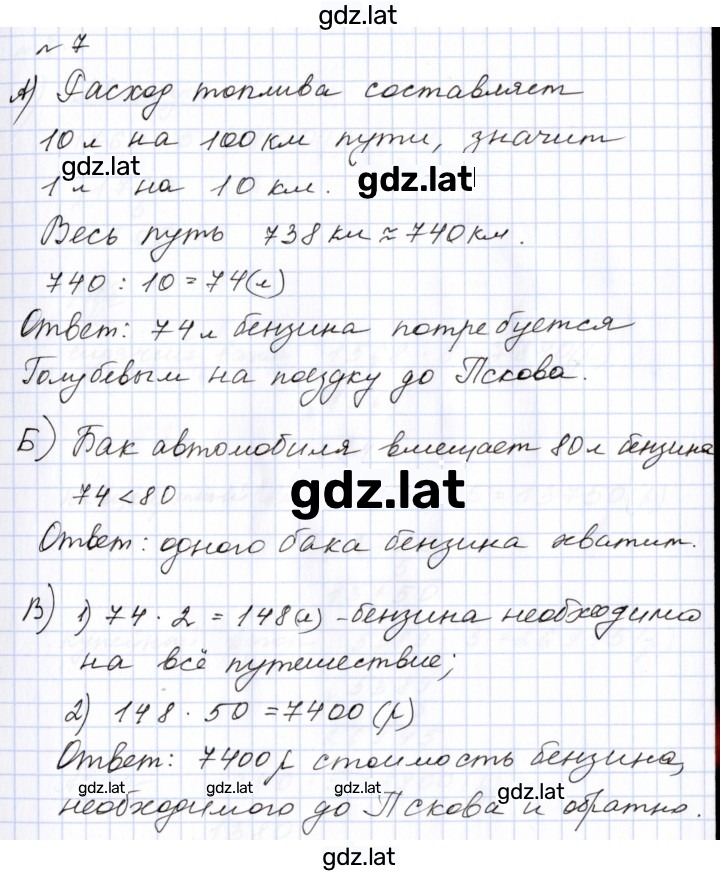 gdz.lat
№ 7
А) Расход топлива составляет
10 л на 100 км пути, значит
gdz.lat
1 л на 10 км. gdz.lat
Весь путь 738 км ≈ 740 км.
740 : 10 = 74 (л)
Ответ: 74 л бензина потребуется
Голубевым на поездку до Пскова.
Б) Бак автомобиля вмещает 80 л бензина
74 < 80 gdz.lat
Ответ: одного бака бензина хватит.
В) 1) 74 · 2 = 148 (л) - бензина необходимо
на всё путешествие;
2) 148 · 50 = 7400 (р)
Ответ: 7400 р стоимость бензина,
gdz.lat gdz.lat gdz.lat gdz.lat
необходимого до Пскова и обратно.
gdz.lat